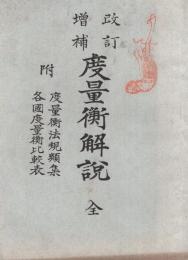 改訂
增補
度量衡解説 全
附
度量衡法規類集
各國度量衡比較表